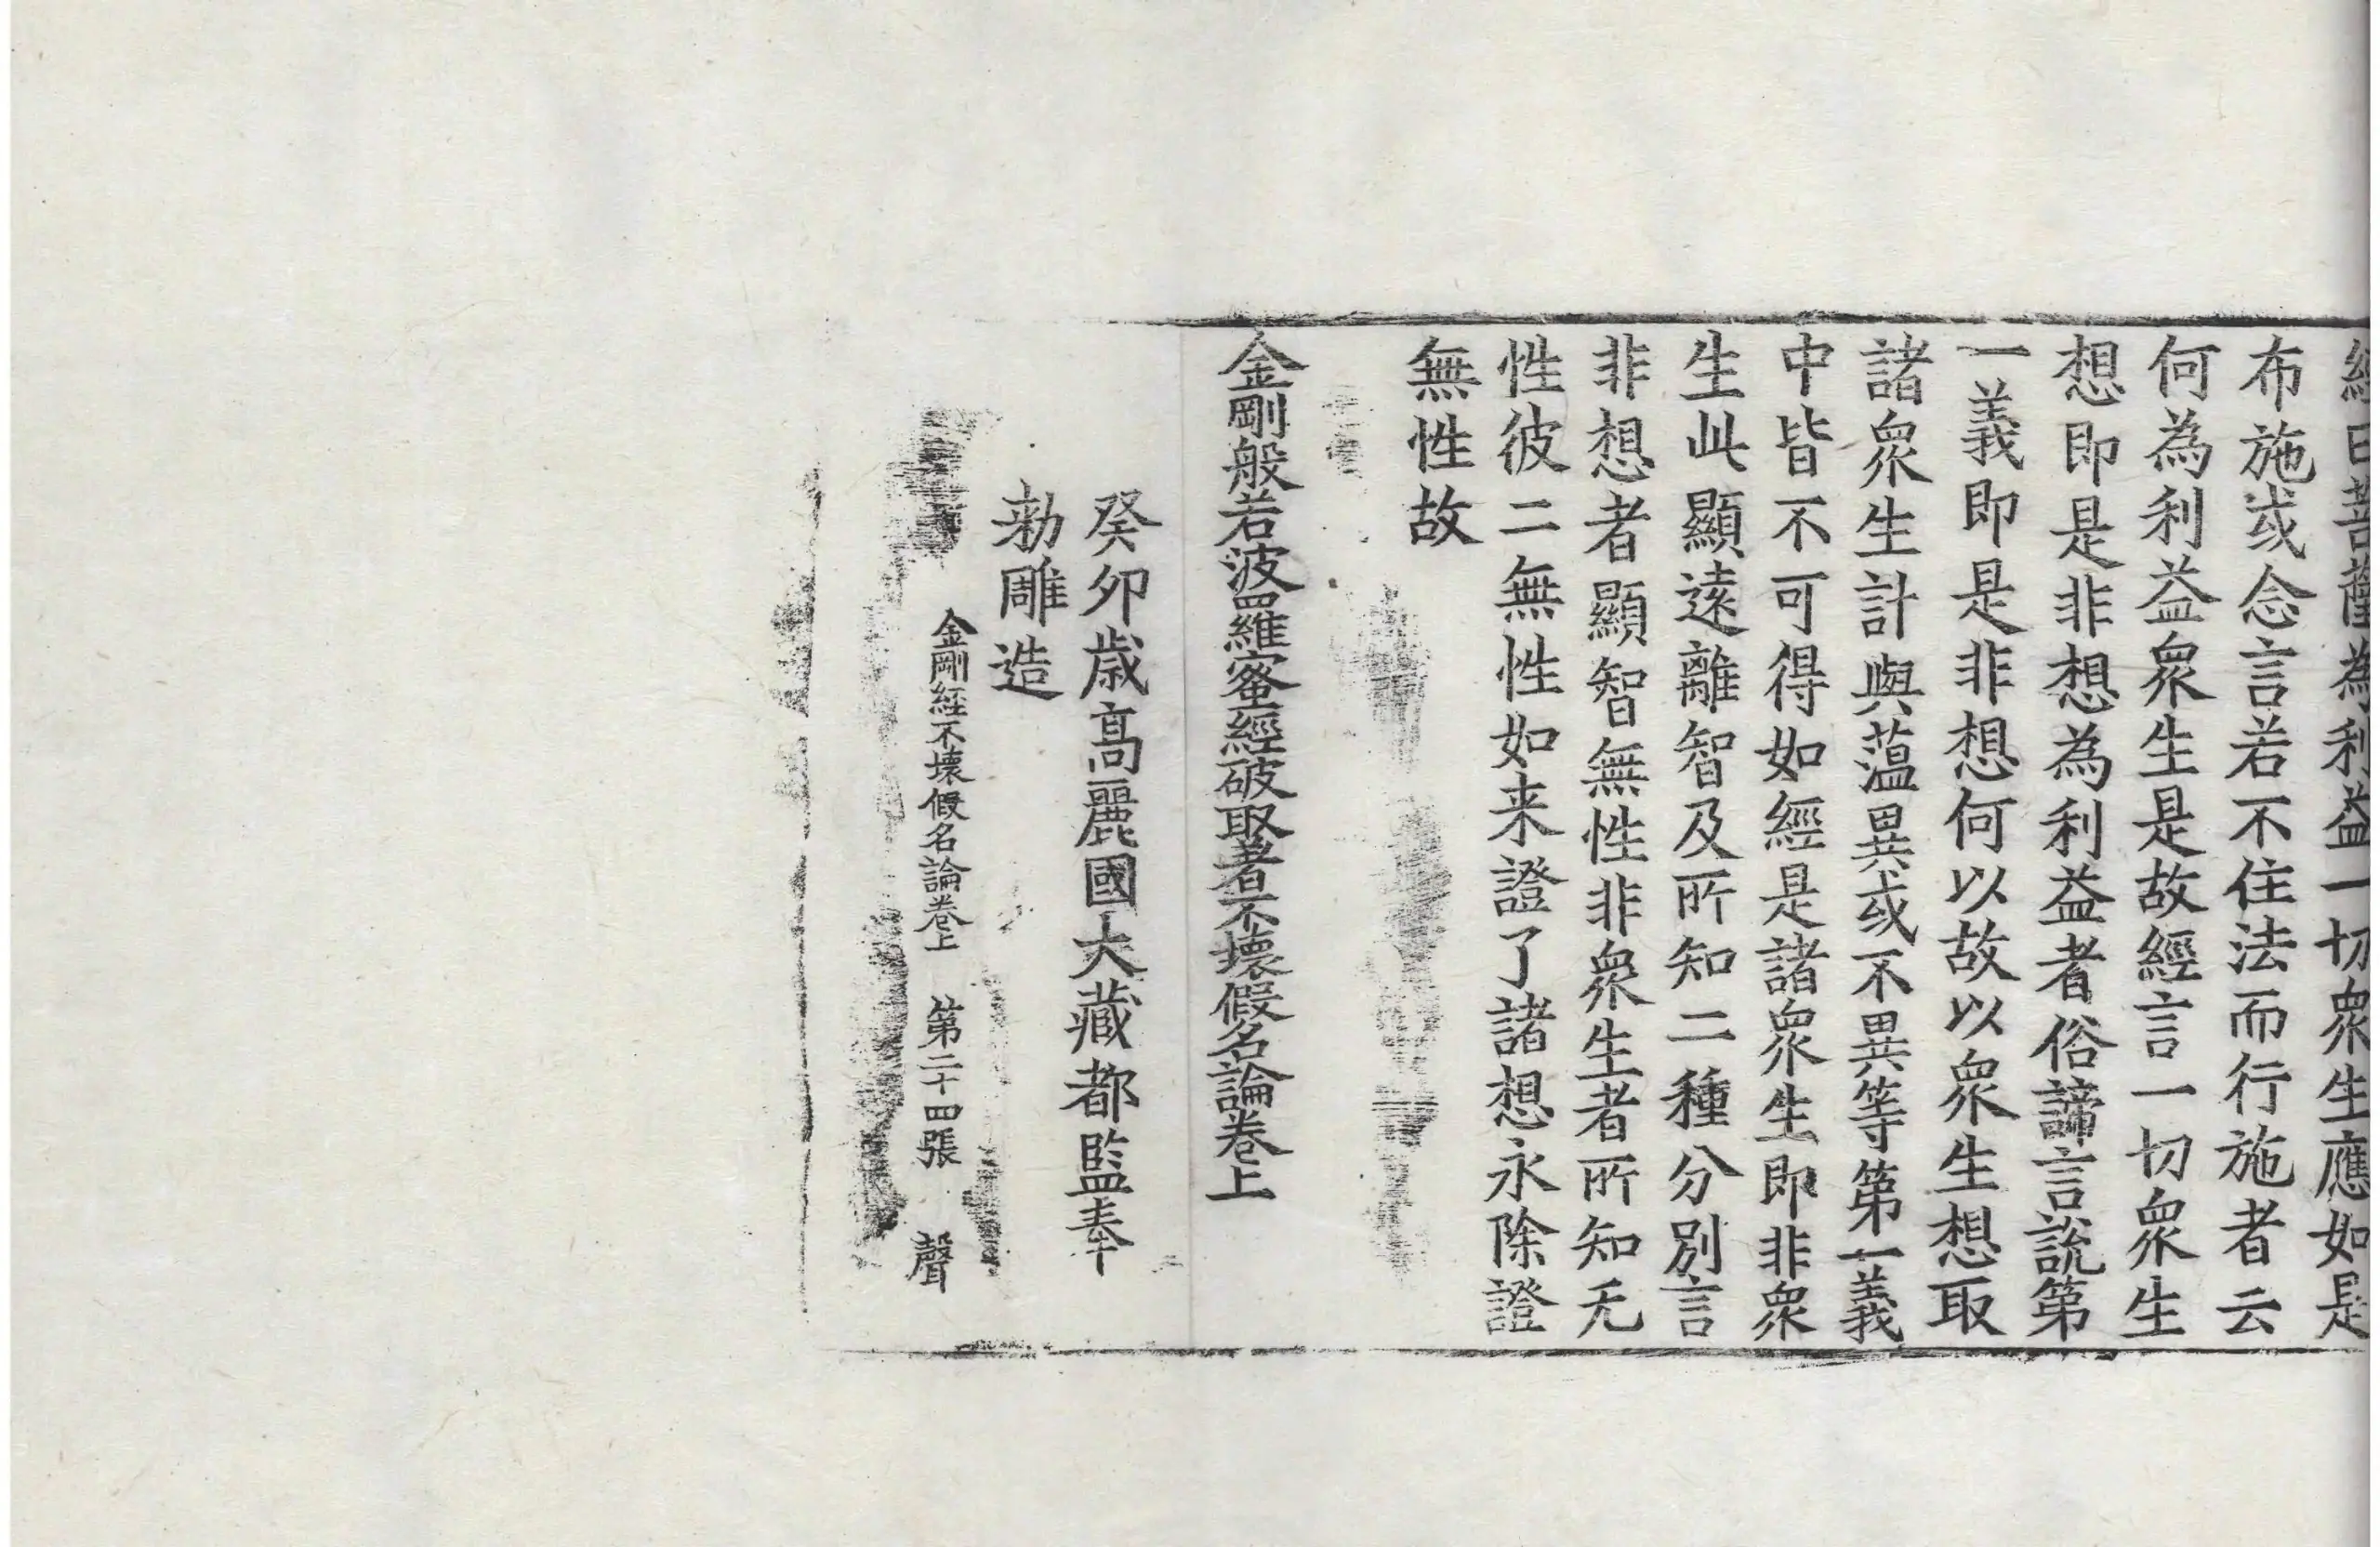 經曰菩薩為利益一切衆生應如是
布施或念言若不住法而行施者云
何為利益衆生是故經言一切衆生
想即是非想為利益者俗諦言說第
一義即是非想何以故以衆生想取
諸衆生計與薀異或不異等第一義
中皆不可得如經是諸衆生即非衆
生此顯遠離智及所知二種分別言
非想者顯智無性非衆生者所知无
性彼二無性如来證了諸想永除證
無性故
金剛般若波羅蜜經破取著不壞假名論卷上
癸卯歲高麗國大藏都監奉
勑雕造
金剛經不壞假名論卷上 第二十四張 聲